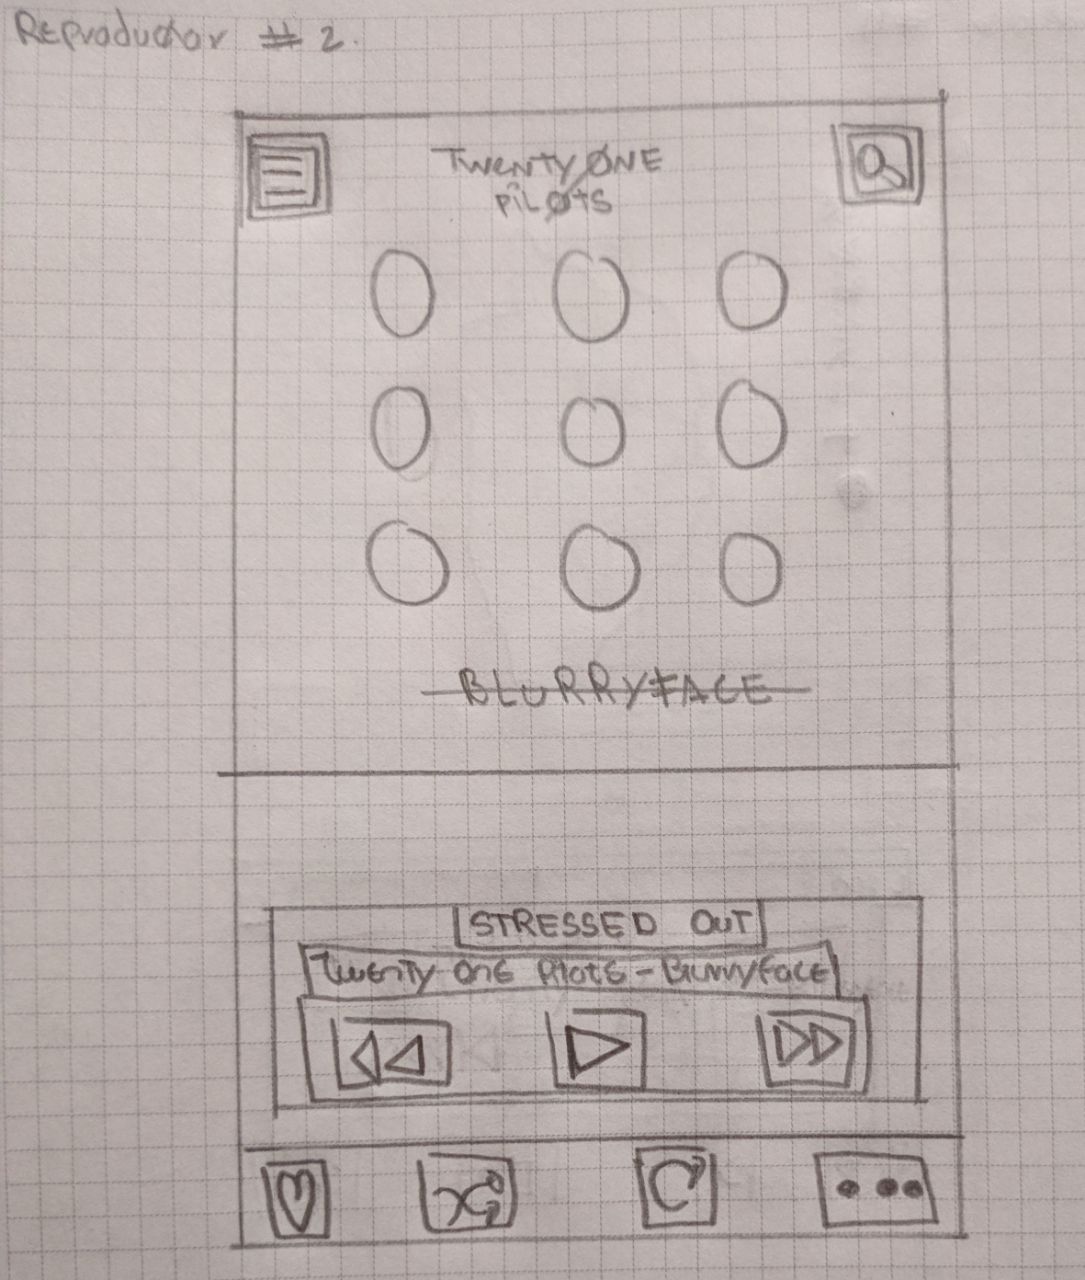 Reproductor # 2.
TwENTY ØNE
PiLØTS
BLURRYFACE
STRESSED OUT
Twenty One Pilots - Blurryface